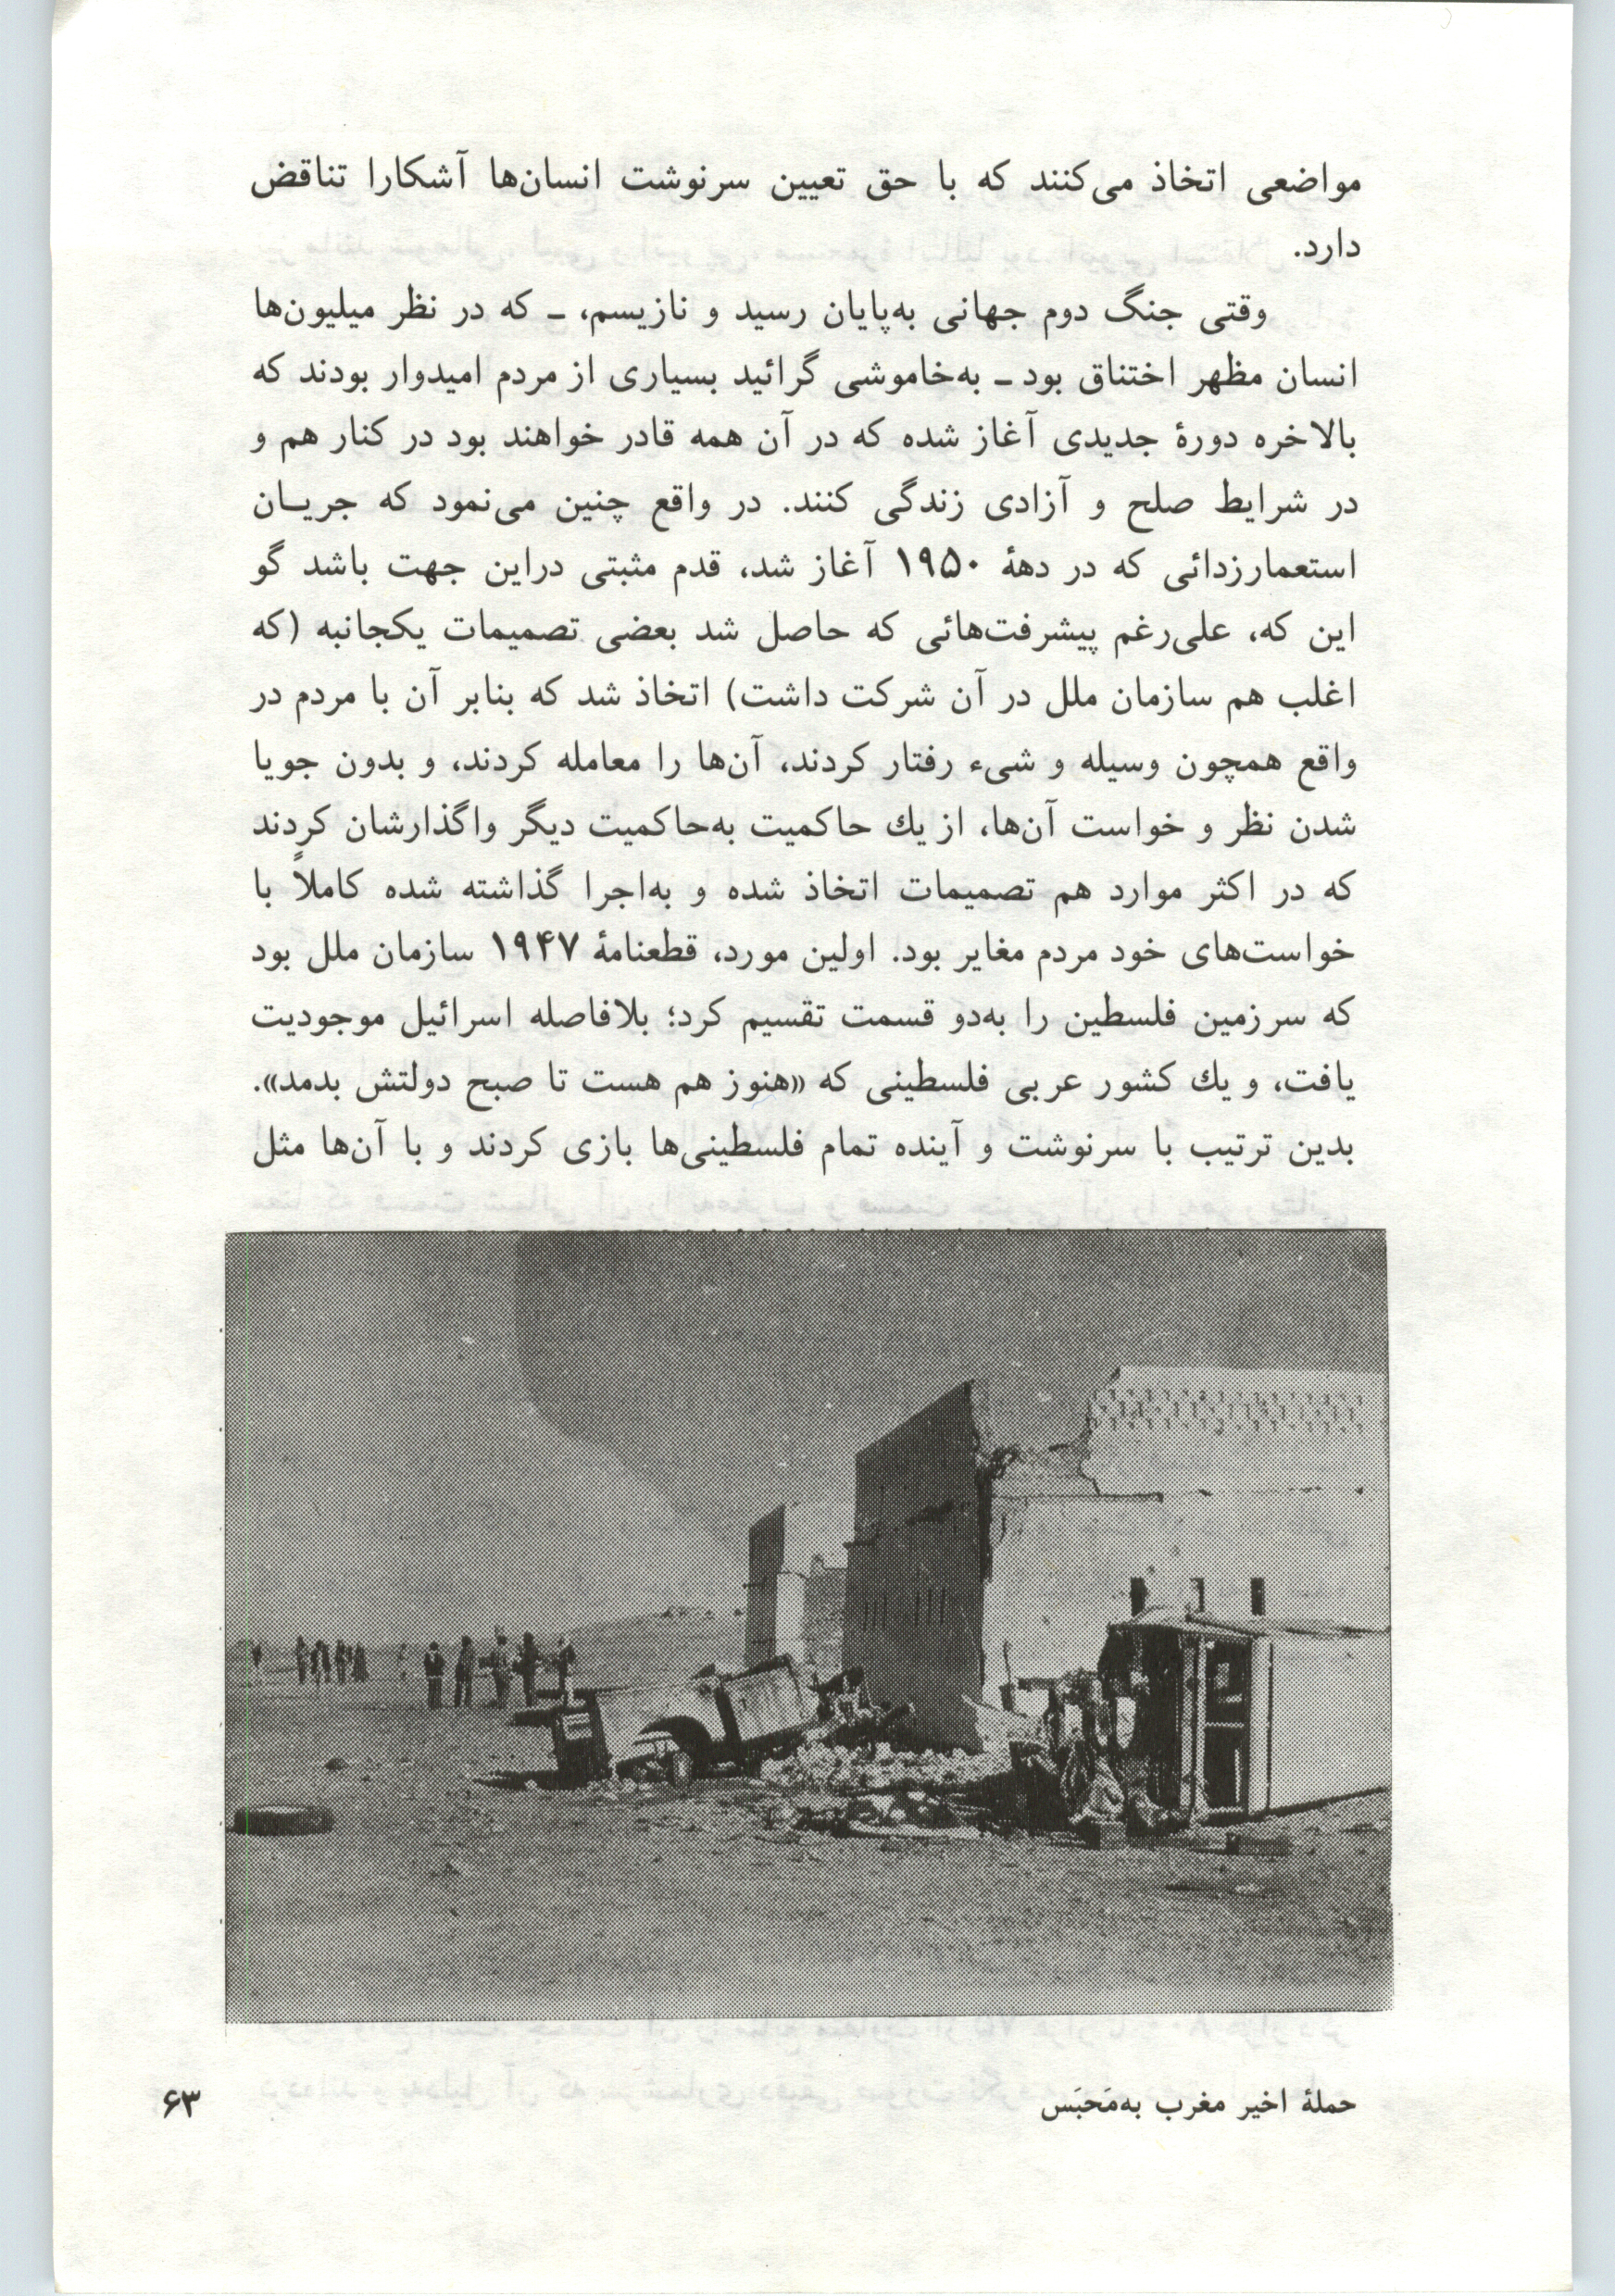 مواضعی اتخاذ می‌کنند که با حق تعیین سرنوشت انسان‌ها آشکارا تناقض
دارد.
وقتی جنگ دوم جهانی به‌پایان رسید و نازیسم، ـ که در نظر میلیون‌ها
انسان مظهر اختناق بود ـ به‌خاموشی گرائید بسیاری از مردم امیدوار بودند که
بالاخره دورهٔ جدیدی آغاز شده که در آن همه قادر خواهند بود در کنار هم و
در شرایط صلح و آزادی زندگی کنند. در واقع چنین می‌نمود که جریـان
استعمارزدائی که در دههٔ ۱۹۵۰ آغاز شد، قدم مثبتی دراین جهت باشد گو
این که، علی‌رغم پیشرفت‌هائی که حاصل شد بعضی تصمیمات یکجانبه (که
اغلب هم سازمان ملل در آن شرکت داشت) اتخاذ شد که بنابر آن با مردم در
واقع همچون وسیله و شیء رفتار کردند، آن‌ها را معامله کردند، و بدون جویا
شدن نظر و خواست آن‌ها، از یك حاکمیت به‌حاکمیت دیگر واگذارشان کردند
که در اکثر موارد هم تصمیمات اتخاذ شده و به‌اجرا گذاشته شده کاملاً با
خواست‌های خود مردم مغایر بود. اولین مورد، قطعنامهٔ ۱۹۴۷ سازمان ملل بود
که سرزمین فلسطین را به‌دو قسمت تقسیم کرد؛ بلافاصله اسرائیل موجودیت
یافت، و یك کشور عربی فلسطینی که «هنوز هم هست تا صبح دولتش بدمد».
بدین ترتیب با سرنوشت و آینده تمام فلسطینی‌ها بازی کردند و با آن‌ها مثل
حملهٔ اخیر مغرب به‌مَحبَس
۶۳